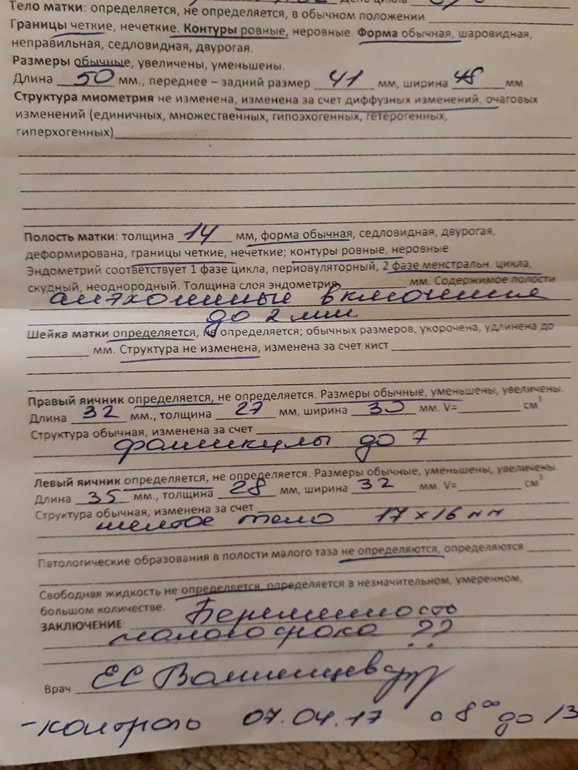 Тело матки: определяется, не определяется, в обычном положении
Границы четкие, нечеткие. Контуры ровные, неровные. Форма обычная, шаровидная,
неправильная, седловидная, двурогая.
Размеры обычные, увеличены, уменьшены.
Длина 50 мм., переднее – задний размер 41 мм, ширина 48 мм
Структура миометрия не изменена, изменена за счет диффузных изменений, очаговых
изменений (единичных, множественных, гипоэхогенных, гетерогенных,
гиперхогенных)
Полость матки: толщина 14 мм, форма обычная, седловидная, двурогая,
деформирована, границы четкие, нечеткие; контуры ровные, неровные
Эндометрий соответствует 1 фазе цикла, периовуляторный, 2 фазе менстральн. цикла,
скудный, неоднородный. Толщина слоя эндометрия мм. Содержимое полости
анэхогенные включения
до 2 мм
Шейка матки определяется, не определяется; обычных размеров, укорочена, удлинена до
мм. Структура не изменена, изменена за счет кист
Правый яичник определяется, не определяется. Размеры обычные, уменьшены, увеличены.
Длина 32 мм., толщина 27 мм, ширина 30 мм. V= см3
Структура обычная, изменена за счет
фолликулы до 7
Левый яичник определяется, не определяется. Размеры обычные, уменьшены, увеличены
Длина 35 мм., толщина 28 мм, ширина 32 мм. V= см3
Структура обычная, изменена за счет
желтое тело 17 х 16 мм
Патологические образования в полости малого таза не определяются, определяются
Свободная жидкость не определяется, определяется в незначительном, умеренном,
большом количестве. Беременность
ЗАКЛЮЧЕНИЕ
малого срока ??
Врач ЕС
- контроль 07.04.17 с 8 00 до 13